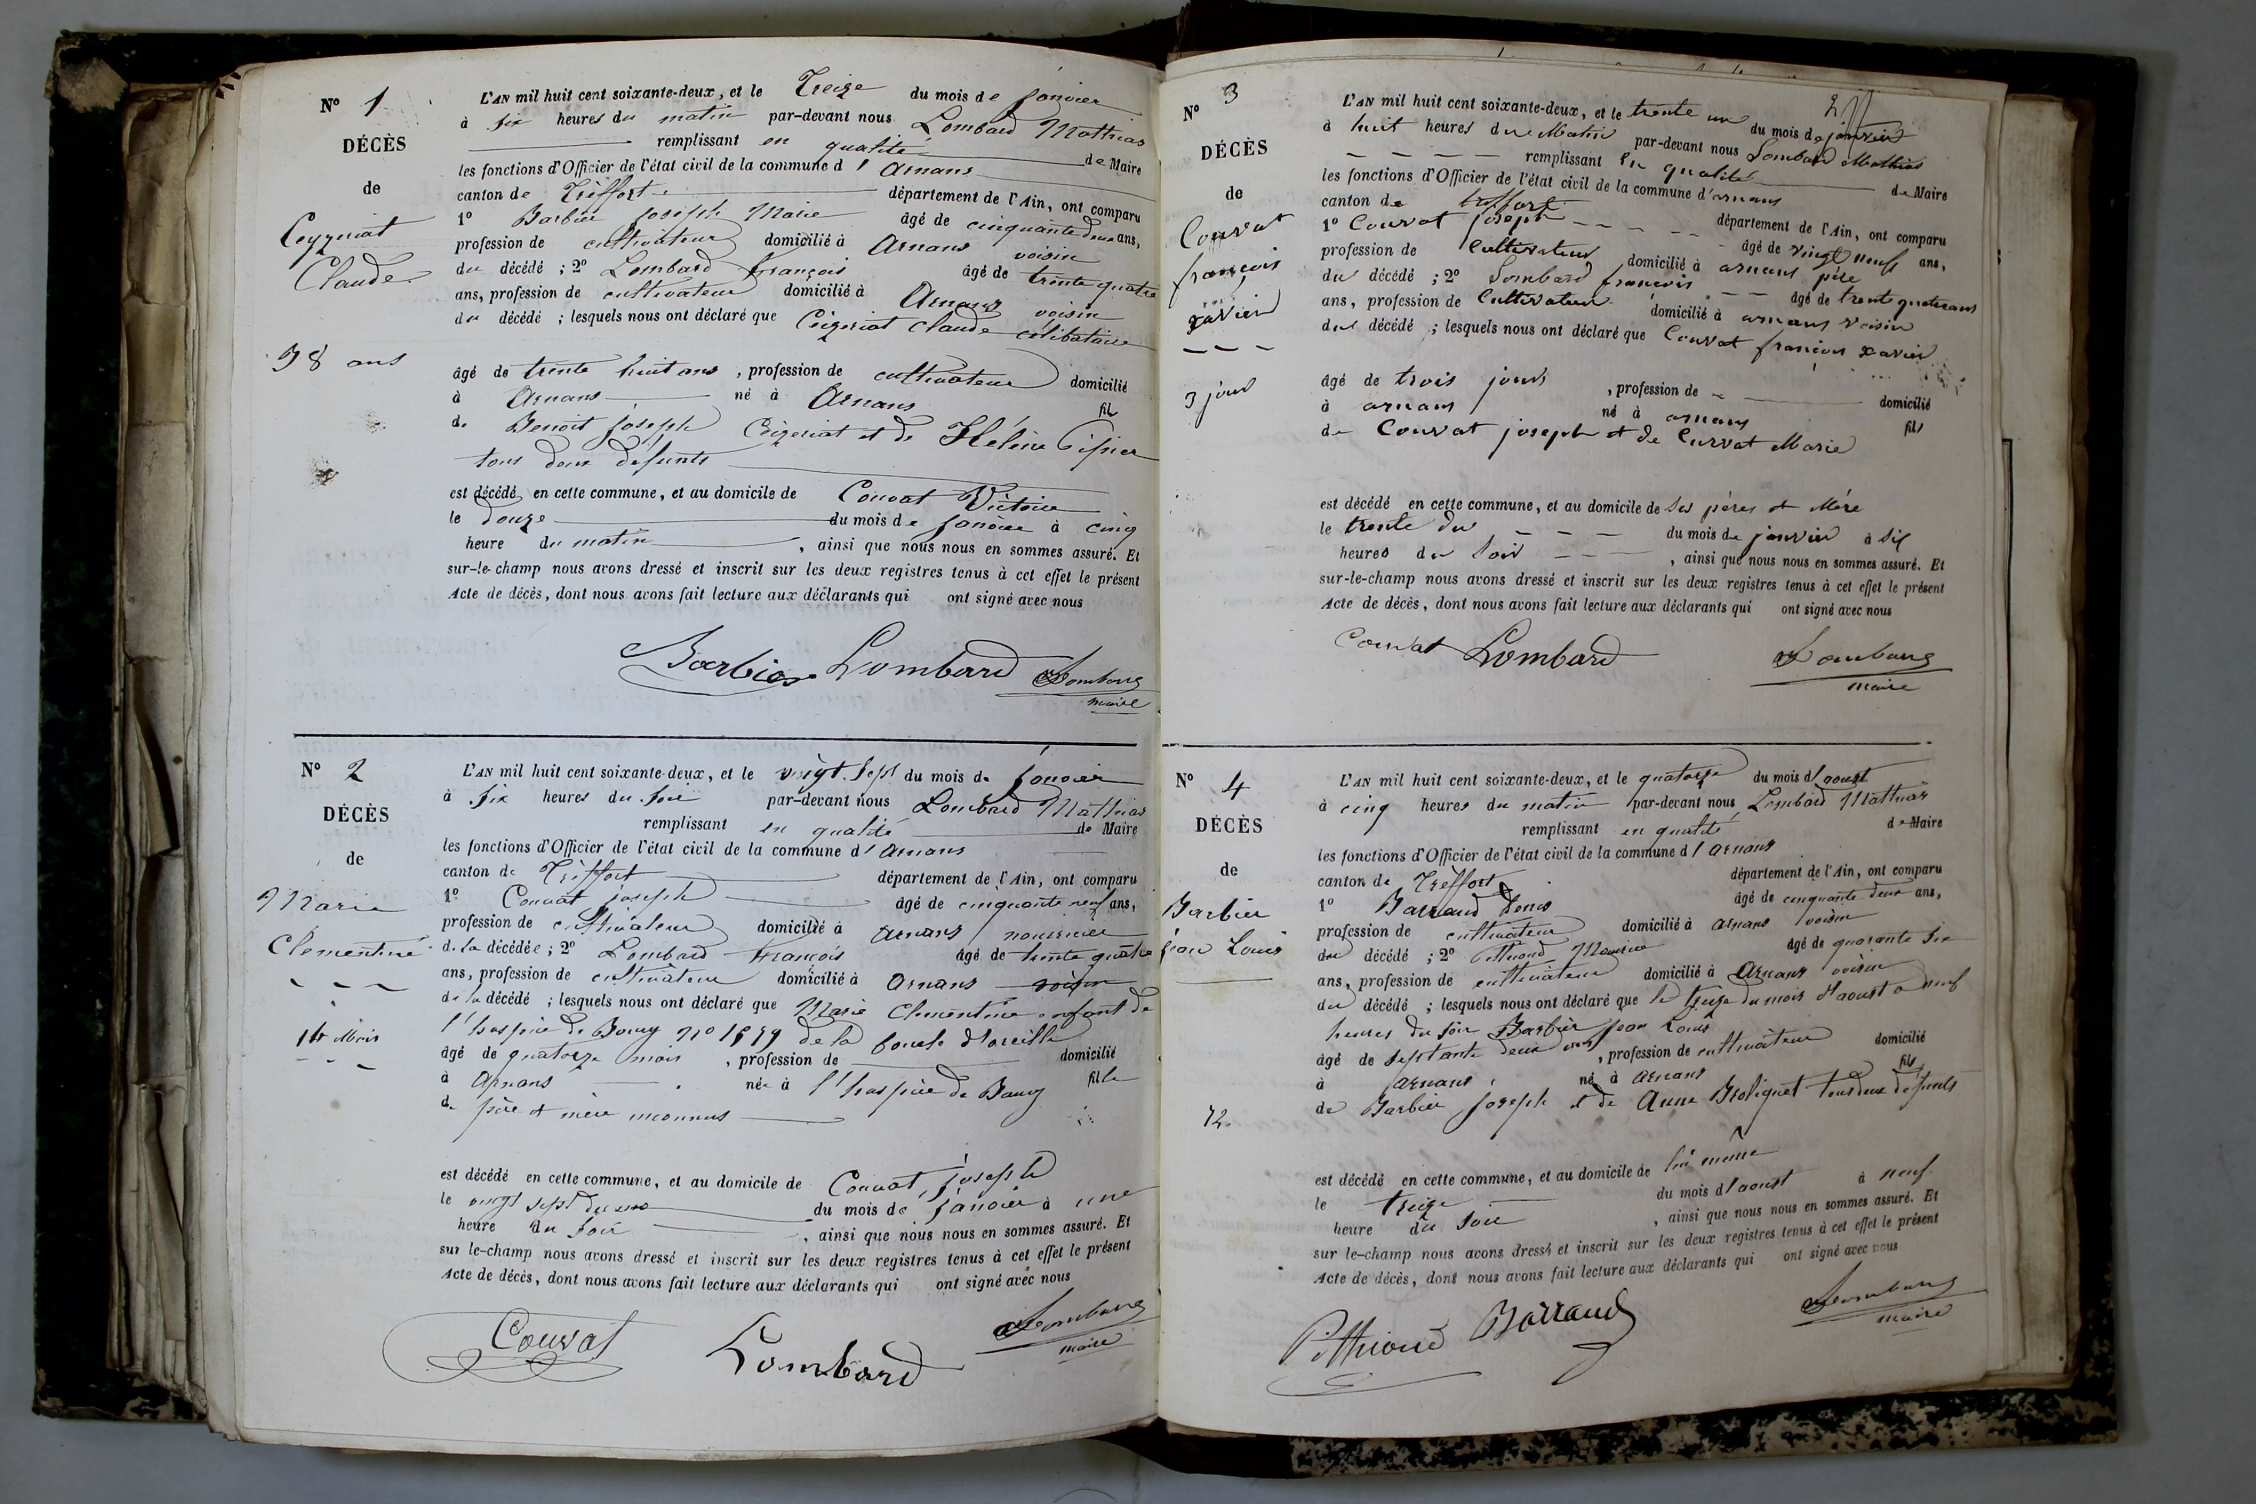 N° 1
DÉCÈS
de
Ceyzeriat
Claude
38 ans
L'AN mil huit cent soixante-deux, et le Treize du mois de janvier
à six heures du matin par-devant nous Lombard Mathias
remplissant en qualité de Maire
les fonctions d'Officier de l'état civil de la commune d'Arnans
canton de Tréffort département de l'Ain, ont comparu
1° Barbier Joséph Marie âgé de cinquante deux ans,
profession de cultivateur domicilié à Arnans voisin
du décédé ; 2° Lombard François âgé de trente quatre
ans, profession de cultivateur domicilié à Arnans voisin
du décédé ; lesquels nous ont déclaré que Ceizeriat Claude célibataire
âgé de trente huit ans, profession de cultivateur domicilié
à Arnans né à Arnans fils
de Benoit Joséph Ceizeriat et de Hélène
tous deux défunts
est décédé en cette commune, et au domicile de Couvat Victoire
le douze du mois de janvier à cinq
heure du matin, ainsi que nous nous en sommes assuré. Et
sur-le-champ nous avons dressé et inscrit sur les deux registres tenus à cet effet le présent
Acte de décès, dont nous avons fait lecture aux déclarants qui ont signé avec nous
Barbier Lombard Lombard
maire
N° 2
DÉCÈS
de
Marie
Clémentine
14 Mois
L'AN mil huit cent soixante-deux, et le vingt-sept du mois de janvier
à six heures du soir par-devant nous Lombard Mathias
remplissant en qualité de Maire
les fonctions d'Officier de l'état civil de la commune d'Arnans
canton de Tréffort département de l'Ain, ont comparu
1° Couvat joseph âgé de cinquante neuf ans,
profession de cultivateur domicilié à Arnans nourricier
de la décédée ; 2° Lombard François âgé de trente quatre
ans, profession de cultivateur domicilié à Arnans voisin
de la décédé ; lesquels nous ont déclaré que Marie Clementine enfant de
l'hospice de Bourg n° de la boucle d'oreille
âgé de quatorze mois, profession de domicilié
à Arnans née à l'hospice de Bourg fille
de père et mère inconnus
est décédé en cette commune, et au domicile de Couvat joseph
le vingt sept du mois du mois de janvier à une
heure du soir, ainsi que nous nous en sommes assuré. Et
sur le-champ nous avons dressé et inscrit sur les deux registres tenus à cet effet le présent
Acte de décès, dont nous avons fait lecture aux déclarants qui ont signé avec nous
Couvat Lombard Lombard
maire
N° 3
DÉCÈS
de
Couvat
françois
xavier
3 jours
L'AN mil huit cent soixante-deux, et le trente un du mois de janvier
à huit heures du Matin par-devant nous Lombard Mathias
remplissant en qualité de Maire
les fonctions d'Officier de l'état civil de la commune d'arnans
canton de treffort département de l'Ain, ont comparu
1° Couvat joseph âgé de vingt neuf ans,
profession de Cultivateur domicilié à arnans père
du décédé ; 2° Lombard françois âgé de trente quatre ans
ans, profession de Cultivateur domicilié à arnans voisin
du décédé ; lesquels nous ont déclaré que Couvat françois xavier
âgé de trois jours, profession de domicilié
à arnans né à arnans fils
de Couvat joseph et de Curvat Marie
est décédé en cette commune, et au domicile de ses pères et Mère
le trente du du mois de janvier à six
heures du Soir, ainsi que nous nous en sommes assuré. Et
sur-le-champ nous avons dressé et inscrit sur les deux registres tenus à cet effet le présent
Acte de décès, dont nous avons fait lecture aux déclarants qui ont signé avec nous
Couvat Lombard Lombard
maire
N° 4
DÉCÈS
de
Barbier
jean Louis
72
L'AN mil huit cent soixante-deux, et le quatorze du mois d'aoust
à cinq heures du matin par-devant nous Lombard Mathias
remplissant en qualité de Maire
les fonctions d'Officier de l'état civil de la commune d'Arnans
canton de Tréffort département de l'Ain, ont comparu
1° Barraud Denis âgé de cinquante deux ans,
profession de cultivateur domicilié à Arnans voisin
du décédé ; 2° Pitthioud Maurice âgé de quarante six
ans, profession de cultivateur domicilié à Arnans voisin
du décédé ; lesquels nous ont déclaré que le treize du mois d'aoust a neuf
heures du soir Barbier jean Louis
âgé de septante deux ans, profession de cultivateur domicilié
à Arnans né à Arnans fils
de Barbier joseph et de Anne Broliquet tous deux défunts
est décédé en cette commune, et au domicile de lui même
le treize du mois d'aoust à neuf
heure du soir, ainsi que nous nous en sommes assuré. Et
sur le-champ nous avons dressé et inscrit sur les deux registres tenus à cet effet le présent
Acte de décès, dont nous avons fait lecture aux déclarants qui ont signé avec nous
Pitthioud Barraud Lombard
maire